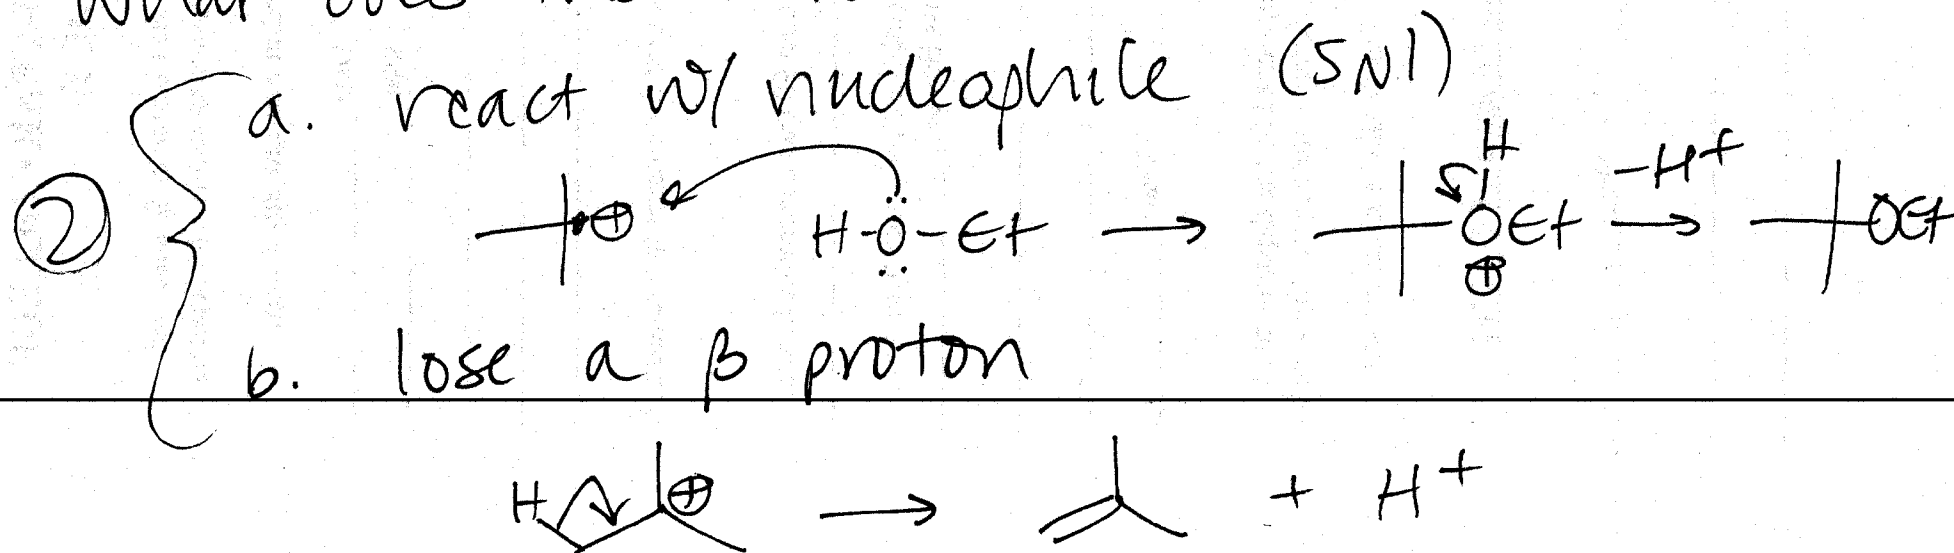 ② a. react w/ nucleophile (SN1)
⊕ H-Ö-Et → H OEt ⊕ -H+ → OEt
b. lose a β proton
H ⊕ → + H+